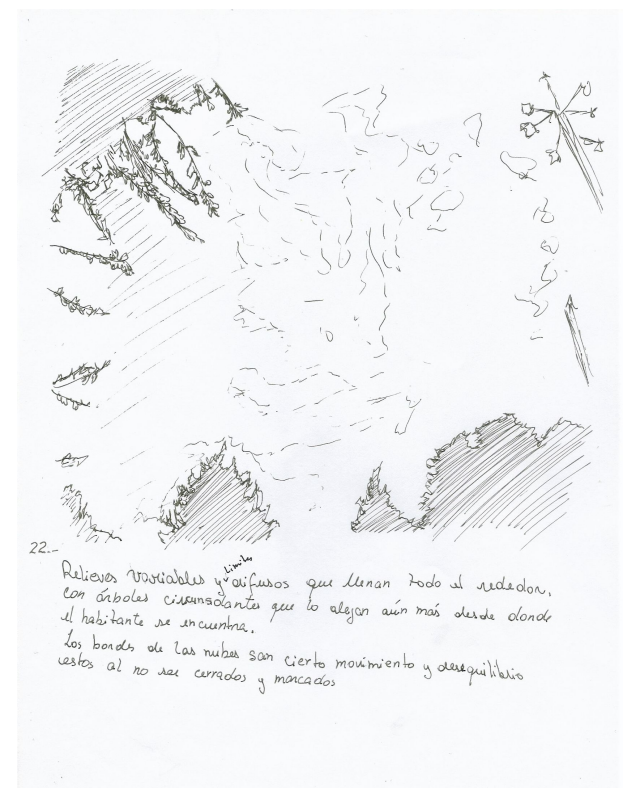 22.-
Relieves variables y límites difusos que llenan todo el rededor.
con árboles circundantes que lo alejan aún más desde donde
el habitante se encuentra.
Los bordes de las nubes san cierto movimiento y desequilibrio
estos al no ser cerrados y marcados